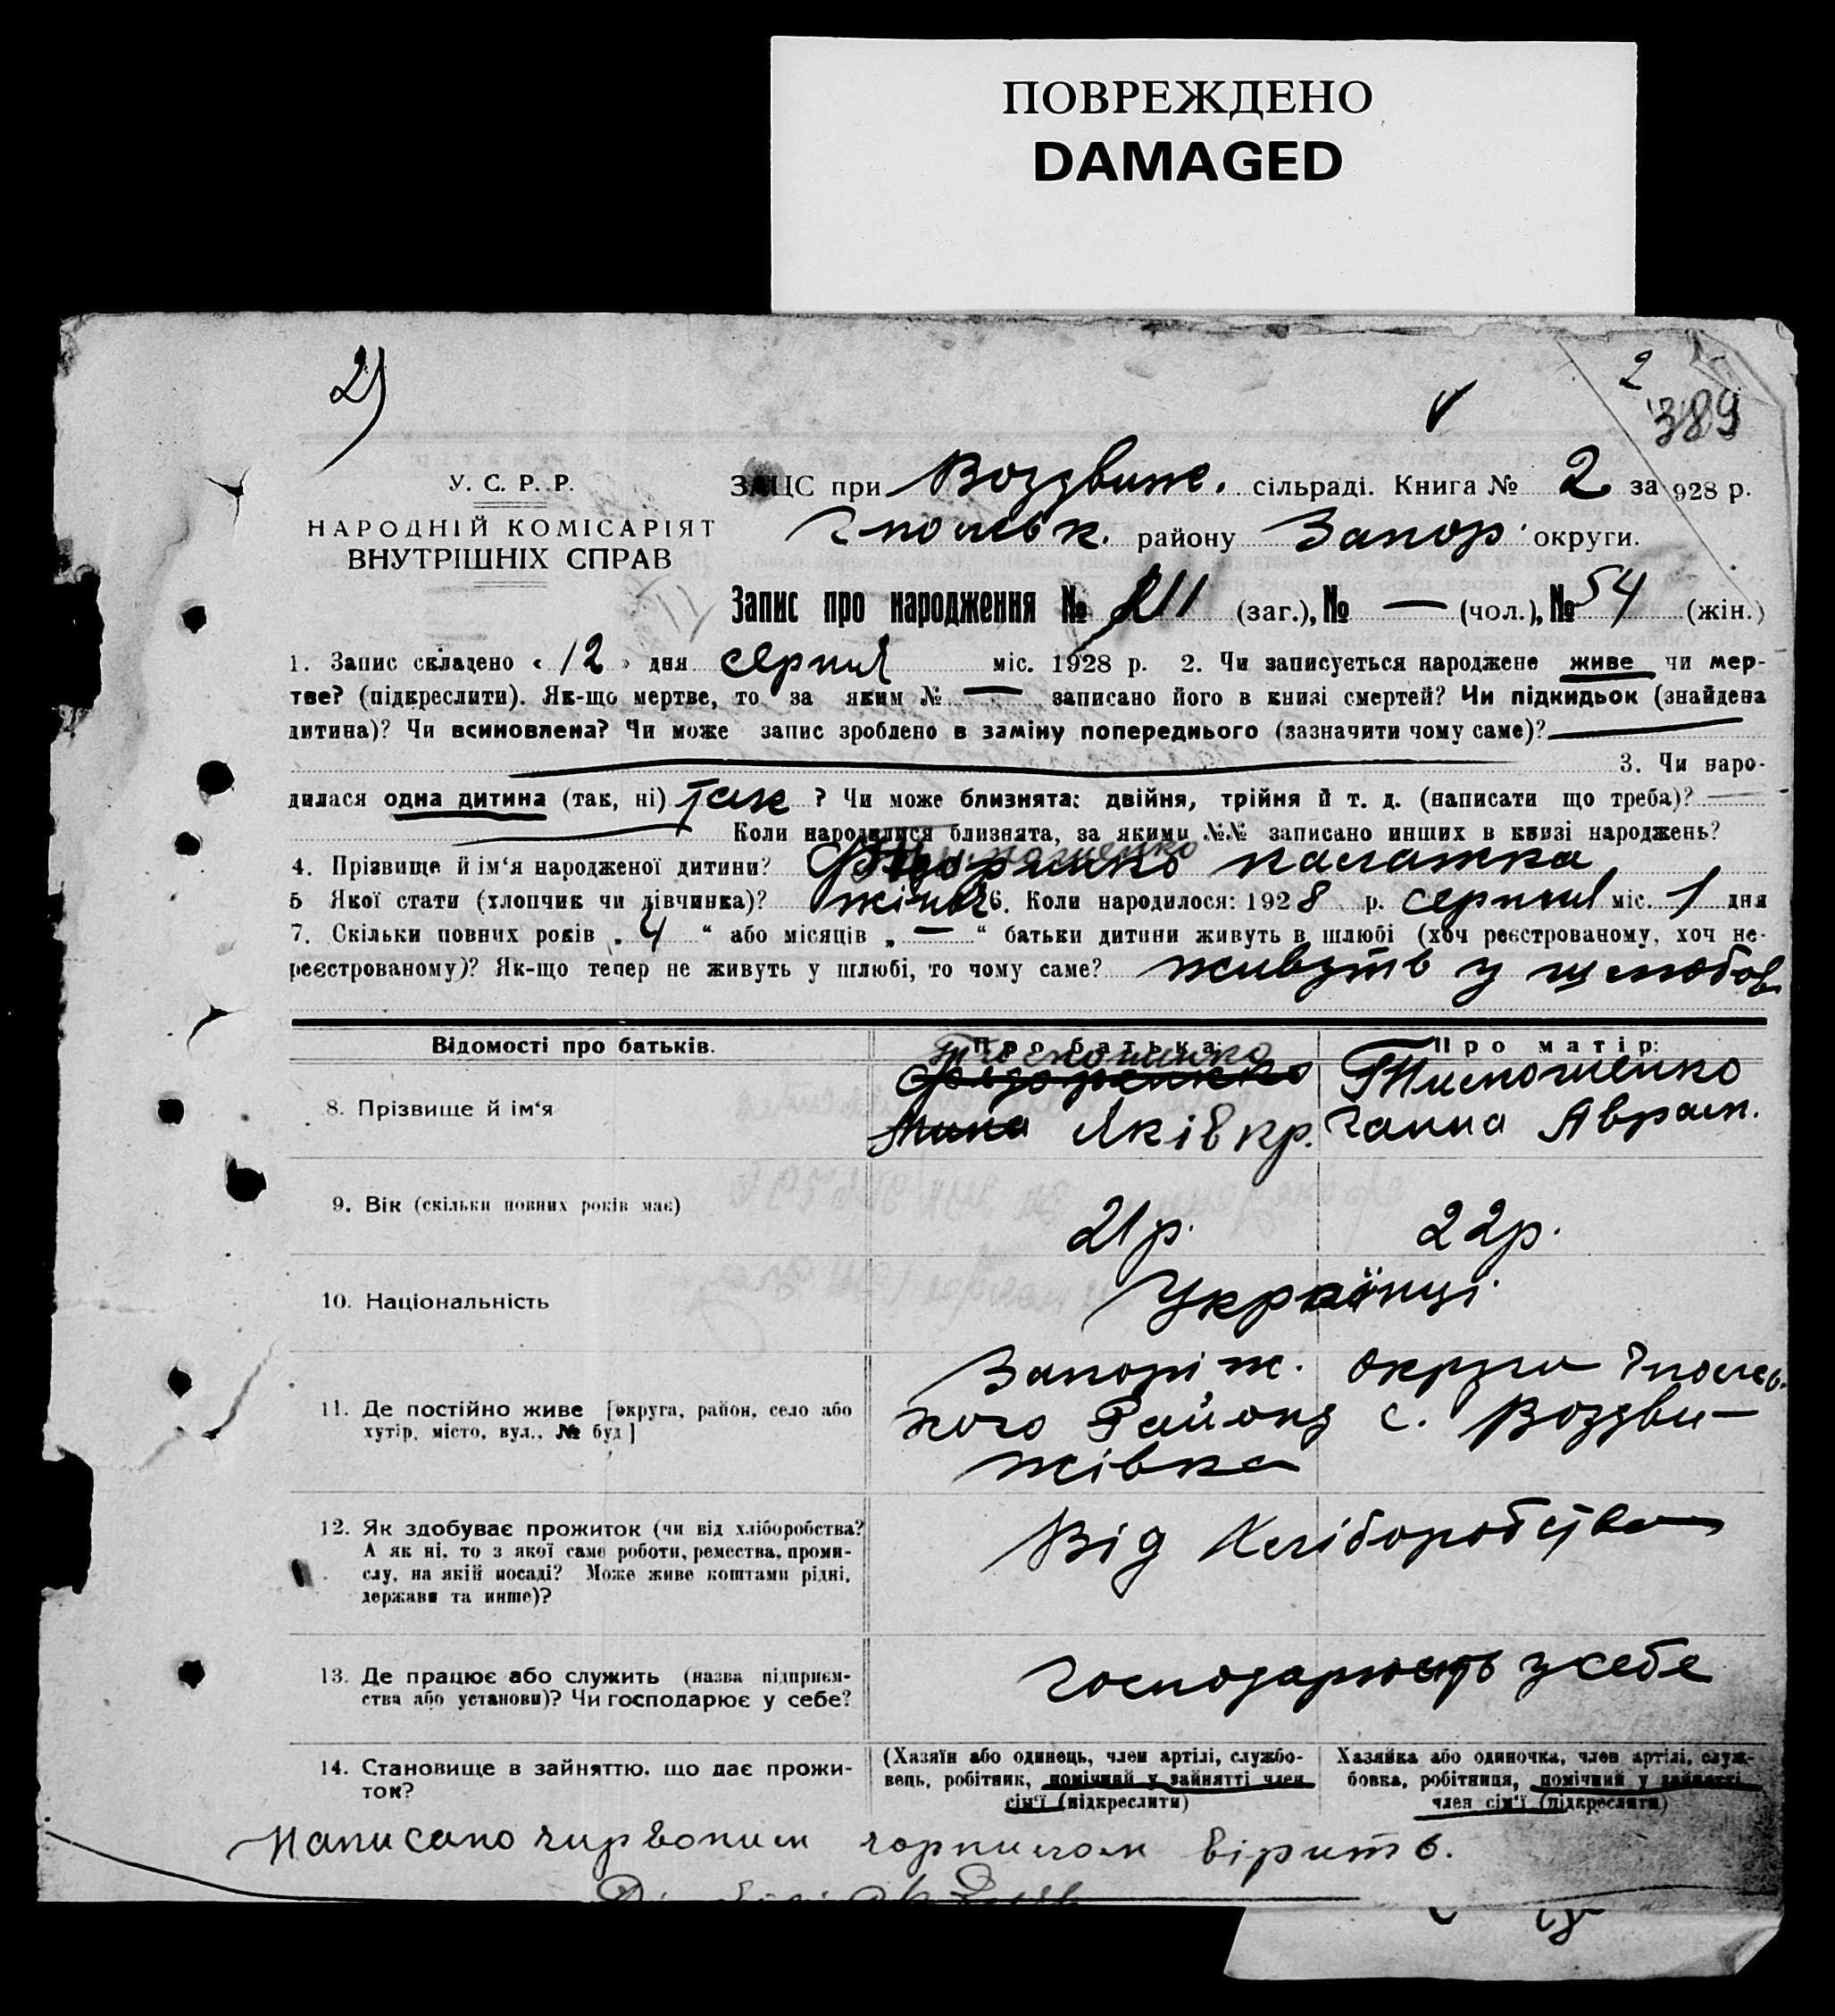 ПОВРЕЖДЕНО
DAMAGED
2)
2
389
У. С. Р. Р.
НАРОДНІЙ КОМІСАРІЯТ
ВНУТРІШНІХ СПРАВ
ЗАЦС при Воздвиж. сільраді. Книга № 2 за 928 р.
району Запор. округи.
Запис про народження № 211 (заг.), № — (чол.), № 54 (жін.)
1. Запис складено « 12 » дня серпня міс. 1928 р. 2. Чи записується народжене живе чи мер-
тве? (підкреслити). Як-що мертве, то за яким № — записано його в книзі смертей? Чи підкидьок (знайдена
дитина)? Чи всиновлена? Чи може запис зроблено в заміну попереднього (зазначити чому саме)? —
3. Чи наро-
дилася одна дитина (так, ні) Так ? Чи може близнята: двійня, трійня й т. д. (написати що треба)?
Коли народилися близнята, за якими №№ записано инших в книзі народжень?
Тимошенко
4. Прізвище й ім'я народженої дитини? Федоренко Палажка
5 Якої стати (хлопчик чи дівчинка)? жіноч 6. Коли народилося: 1928 р. серпня міс. 1 дня
7. Скільки повних років „ 4 “ або місяців „ — “ батьки дитини живуть в шлюбі (хоч реєстрованому, хоч не-
реєстрованому)? Як-що тепер не живуть у шлюбі, то чому саме? живуть у
Відомості про батьків. Про батька: Про матір:
Тимошенко
8. Прізвище й ім'я Федоренко Тимошенко
Яків кр. Ганна Аврам.
9. Вік (скільки повних років має) 21 р. 22 р.
10. Національність Українці
11. Де постійно живе [округа, район, село або
хутір, місто, вул., № буд]
Запоріж. округа
кого Району с. Воздви-
жівка
12. Як здобуває прожиток (чи від хліборобства?
А як ні, то з якої саме роботи, ремества, проми-
слу, на якій посаді? Може живе коштами рідні,
держави та инше)?
Від Хліборобства
13. Де працює або служить (назва підприєм-
ства або установи)? Чи господарює у себе?
Господарюють у себе
14. Становище в зайняттю, що дає прожи-
ток?
(Хазяїн або одинець, член артілі, службо-
вець, робітник, помічний у зайнятті член
сім'ї (підкреслити)
Хазяйка або одиночка, член артілі, служ-
бовка, робітниця, помічний у зайнятті
член сім'ї (підкреслити)
Написано чирвоним чорнилом вірить.